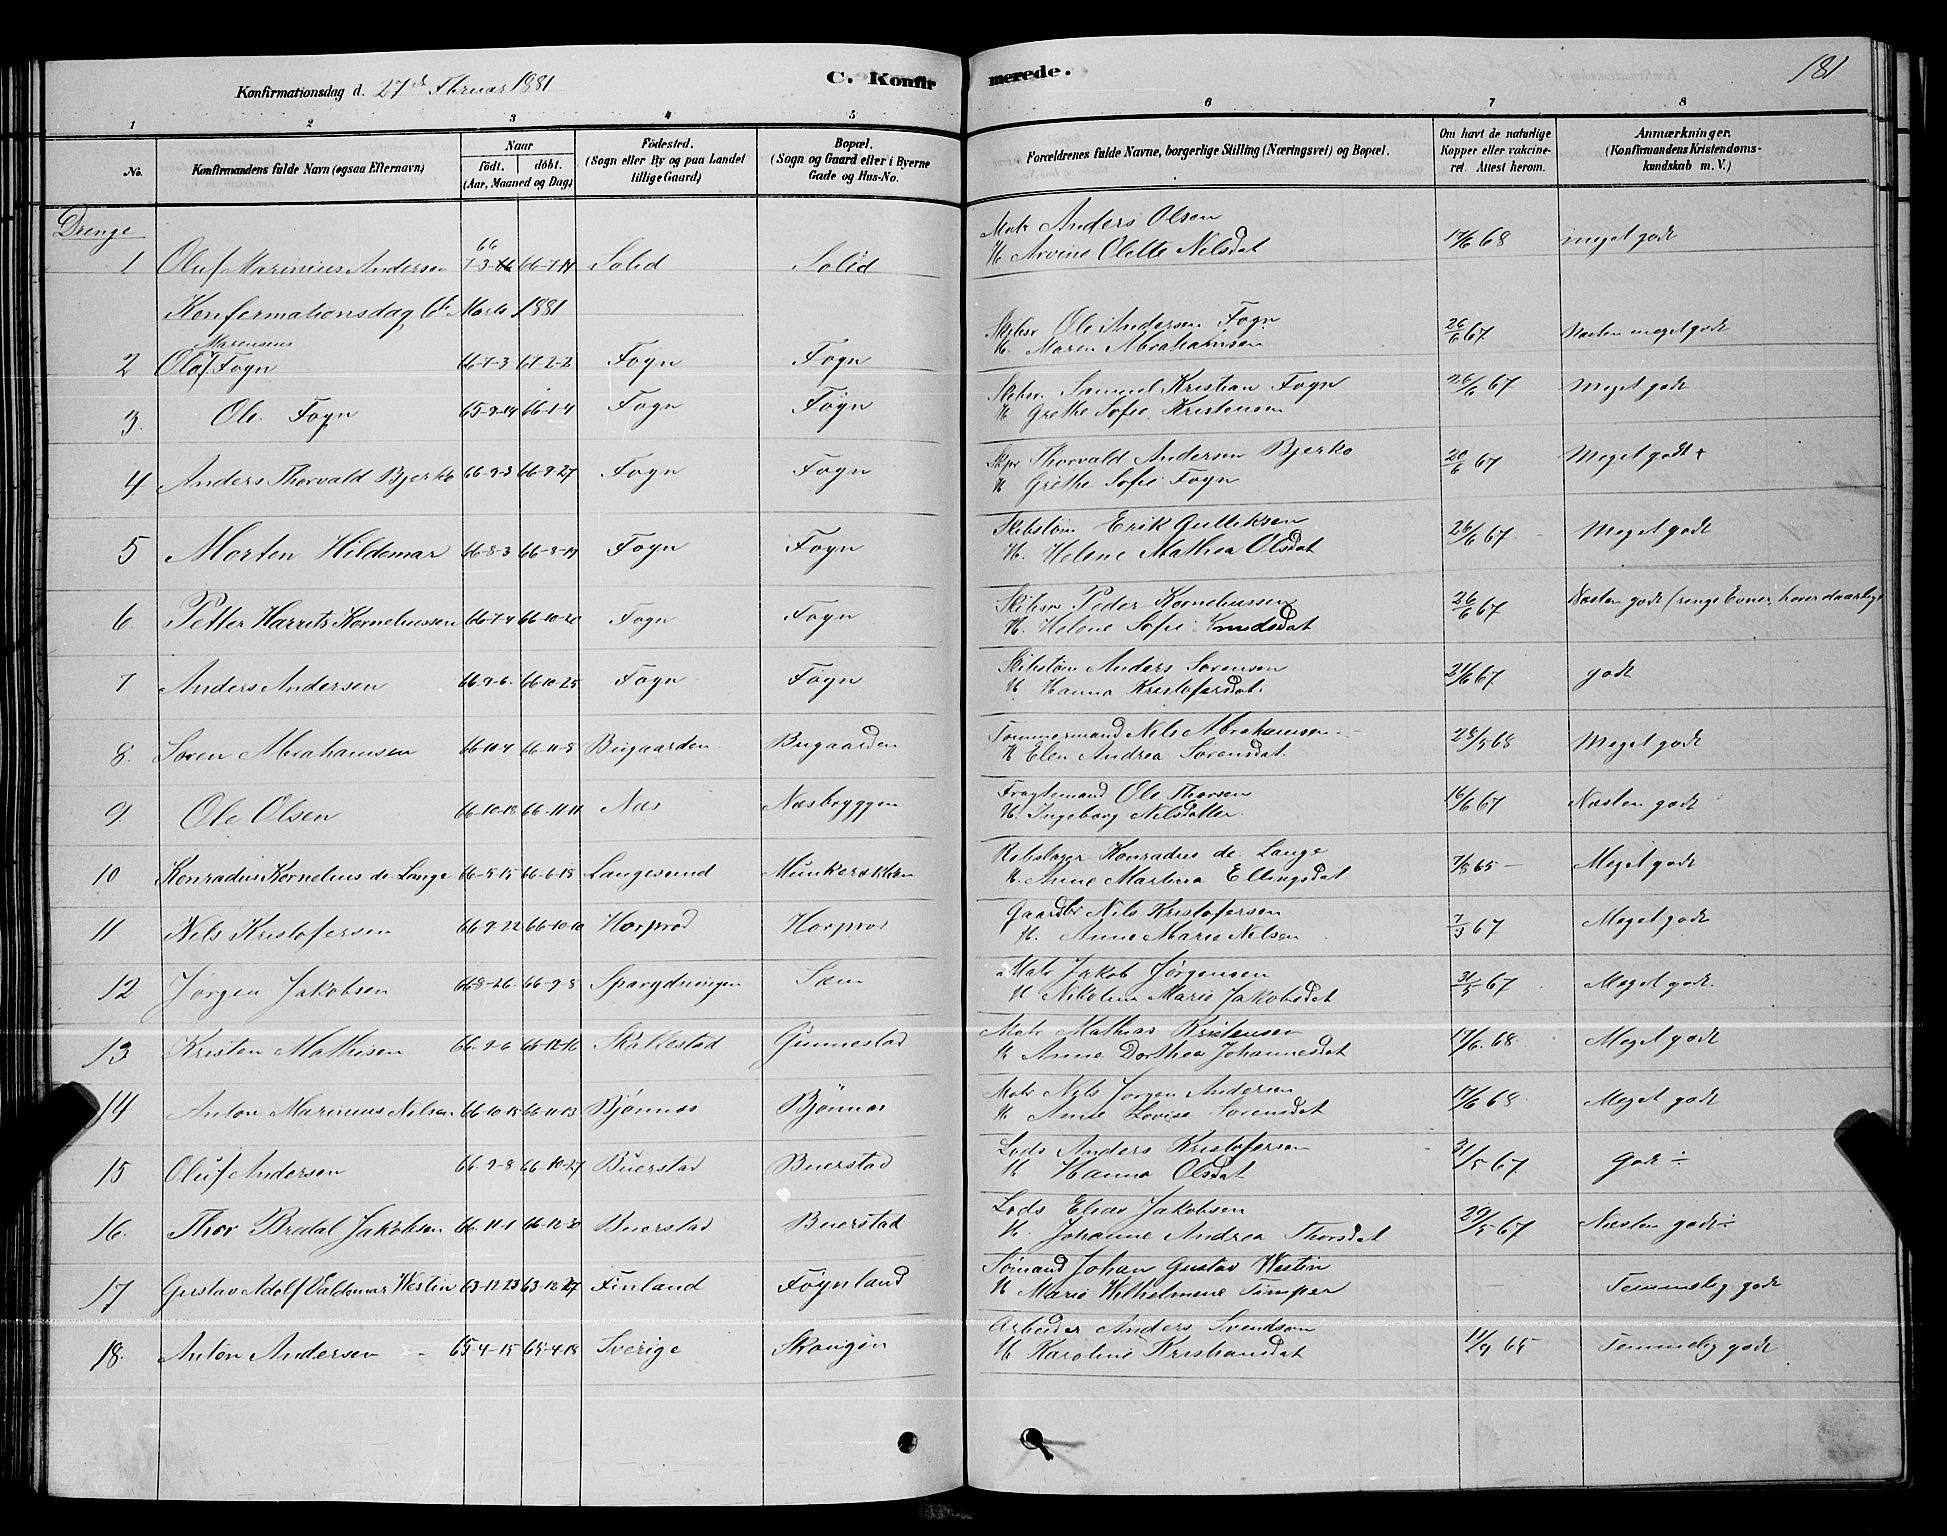 Konfirmationsdag d. 27de Februar 1881
C. Konfirmerede.
181
1 2 3 4 5 6 7 8
No.
Konfirmandens fulde Navn (ogsaa Efternavn)
Naar
Födt. döbt.
(Aar, Maaned og Dag)
Födested.
(Sogn eller By og paa Landet
tillige Gaard)
Bopæl.
(Sogn og Gaard eller i Byerne
Gade og Hus-No.
Forældrenes fulde Navne, borgerlige Stilling (Næringsvei) og Bopæl.
Om havt de naturlige
Kopper eller vakcine-
ret. Attest herom.
Anmærkninger.
(Konfirmandens Kristendoms-
kundskab m. V.)
Drenge
1 Oluf Marinius Andersen 66-7-14 Solid Solid Matr Anders Olsen
H. Arvine Olette Nilsdat 17/6 68 meget godt
Konfermationsdag 6te Marts 1881
2 Olaf Marensius Fogn 66-7-3 67-2-2 Fogn Fogn Skibsr Ole Andersen Fogn
H. Maren Abrahamsen 26/6 67 Næsten meget godt
3. Ole Fogn 65-9-14 66-1-4 Fogn Fogn Skibsr. Samuel Kristian Fogn
H Grethe Sofie Kristensen 26/6 67 Meget godt
4 Anders Thorvald Bjerko 66-9-3 66-9-27 Fogn Fogn Skpr Thorvald Andersen Bjerko
H Grethe Sofie Fogn 20/6 67 Meget godt +
5 Morten Hildemar 66-8-3 66-8-19 Fogn Fogn Skibstøm Erik Gulliksen
H. Helene Mathea Olsdat 26/6 67 Meget godt
6. Petter Harrits Korneliussen 66-7-4 66-10-20 Fogn Fogn Skibsr Peder Korneliussen
H. Helene Sofie Knudsdat 26/6 67 Næsten godt (ringe Evner, hører daarligt
7 Anders Andersen 66-9-6. 66-10-25 Fogn Fogn Skibstøm Anders Sorensen
H Hanna Kristofersdat. 21/6 67 godt
8. Soren Abrahamsen 66-10-4 66-11-8 Bugaarden Bugaarden Tommermand Nils Abrahamsen
H Elen Andrea Sorensdat. 28/5 68 Meget godt
9 Ole Olsen 66-10-18 66-11-11 Næs Næsbryggen Fragtemand Ole Thorsen
H. Ingeborg Nilsdatter. 16/6 67 Næsten godt
10 Konradus Kornelius de Lange 66-5-15 66-6-18 Langesund Munkerækken Rebslager Konradus de Lange
H. Anne Marthea Ellingsdat 7/8 65 Meget godt
11 Nils Kristofersen 66-9-22 66-10-10 Horprod Horprod Gaardbr Nils Kristofersen
H. Anne Marie Nilsen 7/3 67 Meget godt
12 Jørgen Jakobsen 66-8-26. 66-9-8 Sparydningen Sem Matr Jakob Jørgensen
H Nikoline Marie Jakobsdat 31/5 67 Meget godt
13 Kristen Mathisen 66-9-6 66-12-16 Skallestad Gunnestad Matr Mathias Kristensen
H Anne Dorthea Johannesdat 17/6. 68 Meget godt
14 Anton Marinius Nilsen 66-10-15 66-11-13 Bjønnes Bjønnes Matr Nils Jorgen Andersen
H Anne Lovise Sorensdat 17/6 68 Meget godt
15 Oluf Andersen 66-9-8 66-10-27 Buerstad Buerstad Lods Anders Kristofersen
H Hanna Olsdat 31/5 67 godt ÷
16. Thor Bredal Jakobsen 66-11-1 66-12-30 Buerstad Buerstad Lods Elias Jakobsen
H. Johanne Andrea Thorsdat 29/5 67 Næsten godt ÷
17 Gustav Adolf Valdemar Westin 63-12-23 63-12-27 Finland Føynland Sömand Johan Gustav Westin
H Marie Wilhelmene Timper Temmelig godt
18. Anton Andersen 65-4-15 65-4-18 Sverige Skougen Arbeider Anders Svendsen
H Karoline Kristiansdat 11/9 65 Temmelig godt